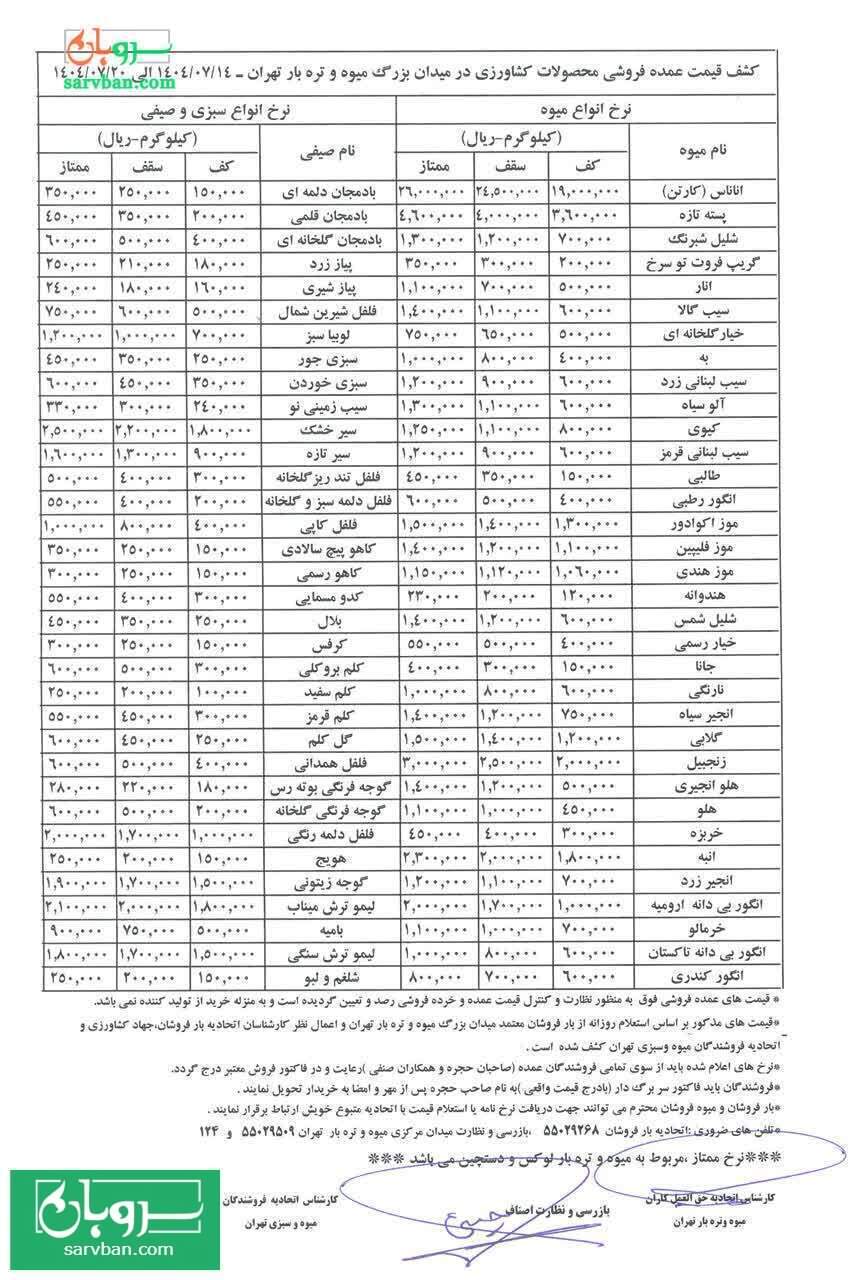 سروبان
sarvban.com
کشف قیمت عمده فروشی محصولات کشاورزی در میدان بزرگ میوه و تره بار تهران ـ ۱۴۰۴/۰۷/۱۴ الی ۱۴۰۴/۰۷/۲۰
نرخ انواع میوه نرخ انواع سبزی و صیفی
نام میوه (کیلوگرم-ریال) نام صیفی (کیلوگرم-ریال)
کف سقف ممتاز کف سقف ممتاز
اناناس (کارتن) ۱۹,۰۰۰,۰۰۰ ۲۴,۵۰۰,۰۰۰ ۲۶,۰۰۰,۰۰۰ بادمجان دلمه ای ۱۵۰,۰۰۰ ۲۵۰,۰۰۰ ۳۵۰,۰۰۰
پسته تازه ۳,۶۰۰,۰۰۰ ۴,۰۰۰,۰۰۰ ۴,۶۰۰,۰۰۰ بادمجان قلمی ۲۰۰,۰۰۰ ۳۵۰,۰۰۰ ۴۵۰,۰۰۰
شلیل شبرنگ ۷۰۰,۰۰۰ ۱,۲۰۰,۰۰۰ ۱,۳۰۰,۰۰۰ بادمجان گلخانه ای ۴۰۰,۰۰۰ ۵۰۰,۰۰۰ ۶۰۰,۰۰۰
گریپ فروت تو سرخ ۲۰۰,۰۰۰ ۳۰۰,۰۰۰ ۳۵۰,۰۰۰ پیاز زرد ۱۸۰,۰۰۰ ۲۱۰,۰۰۰ ۲۵۰,۰۰۰
انار ۵۰۰,۰۰۰ ۷۰۰,۰۰۰ ۱,۱۰۰,۰۰۰ پیاز شیری ۱۶۰,۰۰۰ ۱۸۰,۰۰۰ ۲۴۰,۰۰۰
سیب گالا ۶۰۰,۰۰۰ ۱,۱۰۰,۰۰۰ ۱,۴۰۰,۰۰۰ فلفل شیرین شمال ۵۰۰,۰۰۰ ۶۰۰,۰۰۰ ۷۵۰,۰۰۰
خیار گلخانه ای ۵۰۰,۰۰۰ ۶۵۰,۰۰۰ ۷۵۰,۰۰۰ لوبیا سبز ۷۰۰,۰۰۰ ۱,۰۰۰,۰۰۰ ۱,۲۰۰,۰۰۰
به ۴۰۰,۰۰۰ ۸۰۰,۰۰۰ ۱,۰۰۰,۰۰۰ سبزی جور ۲۵۰,۰۰۰ ۳۵۰,۰۰۰ ۴۵۰,۰۰۰
سیب لبنانی زرد ۶۰۰,۰۰۰ ۹۰۰,۰۰۰ ۱,۲۰۰,۰۰۰ سبزی خوردن ۳۵۰,۰۰۰ ۴۵۰,۰۰۰ ۶۰۰,۰۰۰
آلو سیاه ۶۰۰,۰۰۰ ۱,۱۰۰,۰۰۰ ۱,۳۰۰,۰۰۰ سیب زمینی نو ۲۴۰,۰۰۰ ۳۰۰,۰۰۰ ۳۳۰,۰۰۰
کیوی ۸۰۰,۰۰۰ ۱,۱۰۰,۰۰۰ ۱,۲۵۰,۰۰۰ سیر خشک ۱,۸۰۰,۰۰۰ ۲,۲۰۰,۰۰۰ ۲,۵۰۰,۰۰۰
سیب لبنانی قرمز ۶۰۰,۰۰۰ ۹۰۰,۰۰۰ ۱,۲۰۰,۰۰۰ سیر تازه ۹۰۰,۰۰۰ ۱,۳۰۰,۰۰۰ ۱,۶۰۰,۰۰۰
طالبی ۱۵۰,۰۰۰ ۳۵۰,۰۰۰ ۴۵۰,۰۰۰ فلفل تند ریز گلخانه ۳۰۰,۰۰۰ ۴۰۰,۰۰۰ ۵۰۰,۰۰۰
انگور رطبی ۴۰۰,۰۰۰ ۵۰۰,۰۰۰ ۶۰۰,۰۰۰ فلفل دلمه سبز و گلخانه ۲۰۰,۰۰۰ ۴۰۰,۰۰۰ ۵۵۰,۰۰۰
موز اکوادور ۱,۳۰۰,۰۰۰ ۱,۴۰۰,۰۰۰ ۱,۵۰۰,۰۰۰ فلفل کاپی ۴۰۰,۰۰۰ ۸۰۰,۰۰۰ ۱,۰۰۰,۰۰۰
موز فلیپین ۱,۱۰۰,۰۰۰ ۱,۲۰۰,۰۰۰ ۱,۴۰۰,۰۰۰ کاهو پیچ سالادی ۱۵۰,۰۰۰ ۲۵۰,۰۰۰ ۳۵۰,۰۰۰
موز هندی ۱,۰۶۰,۰۰۰ ۱,۱۲۰,۰۰۰ ۱,۱۵۰,۰۰۰ کاهو رسمی ۱۵۰,۰۰۰ ۲۵۰,۰۰۰ ۳۰۰,۰۰۰
هندوانه ۱۲۰,۰۰۰ ۲۰۰,۰۰۰ ۲۳۰,۰۰۰ کدو مسمایی ۳۰۰,۰۰۰ ۴۰۰,۰۰۰ ۵۵۰,۰۰۰
شلیل شمس ۶۰۰,۰۰۰ ۱,۲۰۰,۰۰۰ ۱,۴۰۰,۰۰۰ بلال ۲۵۰,۰۰۰ ۳۵۰,۰۰۰ ۴۵۰,۰۰۰
خیار رسمی ۴۰۰,۰۰۰ ۵۰۰,۰۰۰ ۵۵۰,۰۰۰ کرفس ۱۵۰,۰۰۰ ۲۵۰,۰۰۰ ۳۰۰,۰۰۰
جانا ۱۵۰,۰۰۰ ۳۰۰,۰۰۰ ۴۰۰,۰۰۰ کلم بروکلی ۳۰۰,۰۰۰ ۵۰۰,۰۰۰ ۶۰۰,۰۰۰
نارنگی ۶۰۰,۰۰۰ ۸۰۰,۰۰۰ ۱,۰۰۰,۰۰۰ کلم سفید ۱۰۰,۰۰۰ ۲۰۰,۰۰۰ ۲۵۰,۰۰۰
انجیر سیاه ۷۵۰,۰۰۰ ۱,۲۰۰,۰۰۰ ۱,۴۰۰,۰۰۰ کلم قرمز ۳۰۰,۰۰۰ ۴۵۰,۰۰۰ ۵۵۰,۰۰۰
گلابی ۱,۲۰۰,۰۰۰ ۱,۴۰۰,۰۰۰ ۱,۵۰۰,۰۰۰ گل کلم ۲۵۰,۰۰۰ ۴۵۰,۰۰۰ ۶۰۰,۰۰۰
زنجبیل ۲,۰۰۰,۰۰۰ ۲,۵۰۰,۰۰۰ ۳,۰۰۰,۰۰۰ فلفل همدانی ۴۰۰,۰۰۰ ۵۰۰,۰۰۰ ۶۰۰,۰۰۰
هلو انجیری ۵۰۰,۰۰۰ ۱,۲۰۰,۰۰۰ ۱,۴۰۰,۰۰۰ گوجه فرنگی بوته رس ۱۸۰,۰۰۰ ۲۲۰,۰۰۰ ۲۸۰,۰۰۰
هلو ۴۵۰,۰۰۰ ۱,۰۰۰,۰۰۰ ۱,۱۰۰,۰۰۰ گوجه فرنگی گلخانه ۲۰۰,۰۰۰ ۵۰۰,۰۰۰ ۶۰۰,۰۰۰
خربزه ۳۰۰,۰۰۰ ۴۰۰,۰۰۰ ۴۵۰,۰۰۰ فلفل دلمه رنگی ۱,۰۰۰,۰۰۰ ۱,۷۰۰,۰۰۰ ۲,۰۰۰,۰۰۰
انبه ۱,۸۰۰,۰۰۰ ۲,۰۰۰,۰۰۰ ۲,۳۰۰,۰۰۰ هویج ۱۵۰,۰۰۰ ۲۰۰,۰۰۰ ۲۵۰,۰۰۰
انجیر زرد ۷۰۰,۰۰۰ ۱,۱۰۰,۰۰۰ ۱,۲۰۰,۰۰۰ گوجه زیتونی ۱,۵۰۰,۰۰۰ ۱,۷۰۰,۰۰۰ ۱,۹۰۰,۰۰۰
انگور بی دانه ارومیه ۱,۰۰۰,۰۰۰ ۱,۷۰۰,۰۰۰ ۲,۰۰۰,۰۰۰ لیمو ترش میناب ۱,۸۰۰,۰۰۰ ۲,۰۰۰,۰۰۰ ۲,۱۰۰,۰۰۰
خرمالو ۷۰۰,۰۰۰ ۱,۰۰۰,۰۰۰ ۱,۱۰۰,۰۰۰ بامیه ۵۰۰,۰۰۰ ۷۵۰,۰۰۰ ۹۰۰,۰۰۰
انگور بی دانه تاکستان ۶۰۰,۰۰۰ ۸۰۰,۰۰۰ ۱,۰۰۰,۰۰۰ لیمو ترش سنگی ۱,۵۰۰,۰۰۰ ۱,۷۰۰,۰۰۰ ۱,۸۰۰,۰۰۰
انگور کندری ۶۰۰,۰۰۰ ۷۰۰,۰۰۰ ۸۰۰,۰۰۰ شلغم و لبو ۱۵۰,۰۰۰ ۲۰۰,۰۰۰ ۲۵۰,۰۰۰
* قیمت های عمده فروشی فوق به منظور نظارت و کنترل قیمت عمده و خرده فروشی رصد و تعیین گردیده است و به منزله خرید از تولید کننده نمی باشد.
*قیمت های مذکور بر اساس استعلام روزانه از بار فروشان معتمد میدان بزرگ میوه و تره بار تهران و اعمال نظر کارشناسان اتحادیه بار فروشان،جهاد کشاورزی و
اتحادیه فروشندگان میوه وسبزی تهران کشف شده است .
*نرخ های اعلام شده باید از سوی تمامی فروشندگان عمده (صاحبان حجره و همکاران صنفی )رعایت و در فاکتور فروش معتبر درج گردد.
*فروشندگان باید فاکتور سر برگ دار (بادرج قیمت واقعی )به نام صاحب حجره پس از مهر و امضا به خریدار تحویل نمایند .
*بار فروشان و میوه فروشان محترم می توانند جهت دریافت نرخ نامه یا استعلام قیمت با اتحادیه متبوع خویش ارتباط برقرار نمایند .
*تلفن های ضروری :اتحادیه بار فروشان ۵۵۰۲۹۲۶۸ ،بازرسی و نظارت میدان مرکزی میوه و تره بار تهران ۵۵۰۲۹۵۰۹ و ۱۲۴
***نرخ ممتاز ،مربوط به میوه و تره بار لوکس و دستچین می باشد ***
کارشناس اتحادیه حق العمل کاران
میوه وتره بار تهران
بازرسی و نظارت اصناف
کارشناس اتحادیه فروشندگان
میوه و سبزی تهران
سروبان
sarvban.com